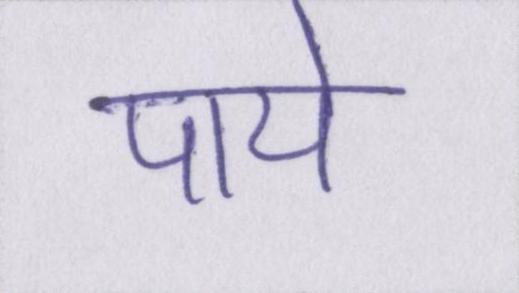 पाये